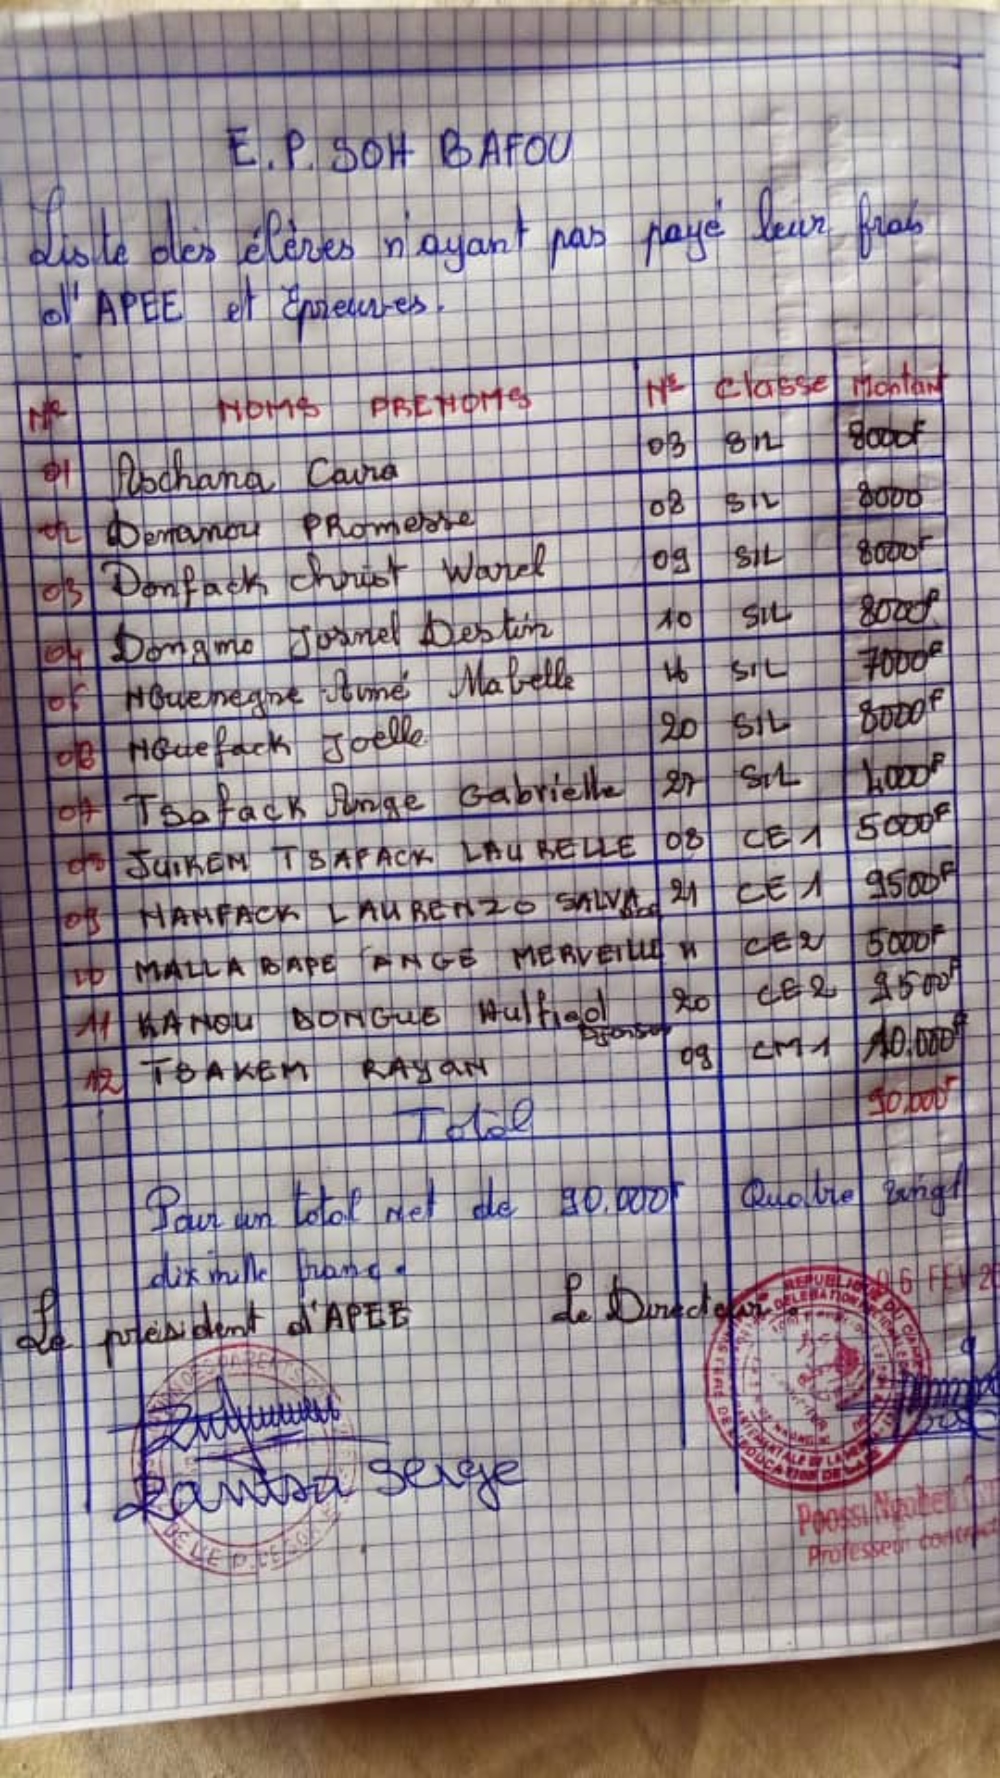 E.P. SOH BAFOU
Liste des élèves n'ayant pas payé leur frais
d'APEE et Epreuves.
N° NOMS PRENOMS N° Classe Montant
01 Aschana Caira 03 SIL 8000F
02 Demanou PRomesse 08 SIL 8000
03 Donfack christ Warel 09 SIL 8000F
04 Dongmo Josnel Destin 10 SIL 8000F
05 NGuenegne Aimé Mabelle 16 SIL 7000F
06 NGuefack Joelle 20 SIL 8000F
07 Tsafack Ange Gabrielle 27 SIL 4000F
08 JUIKEM TSAFACK LAURELLE 08 CE1 5000F
09 NAMFACK LAURENZO SALVA 21 CE1 9500F
10 MALLA BAPE ANGE MERVEILLE 11 CE2 5000F
11 KANOU DONGUE 20 CE2 9500F
12 TSAKEM RAYAN 09 CM1 10.000F
Total 90.000F
Pour un total net de 90.000F Quatre vingt
dix mille franc.
Le président d'APEE Le Directeur.
06 FEV
REPUBLIQUE DU
DELEGATION REGIONALE
Serge
Professeur